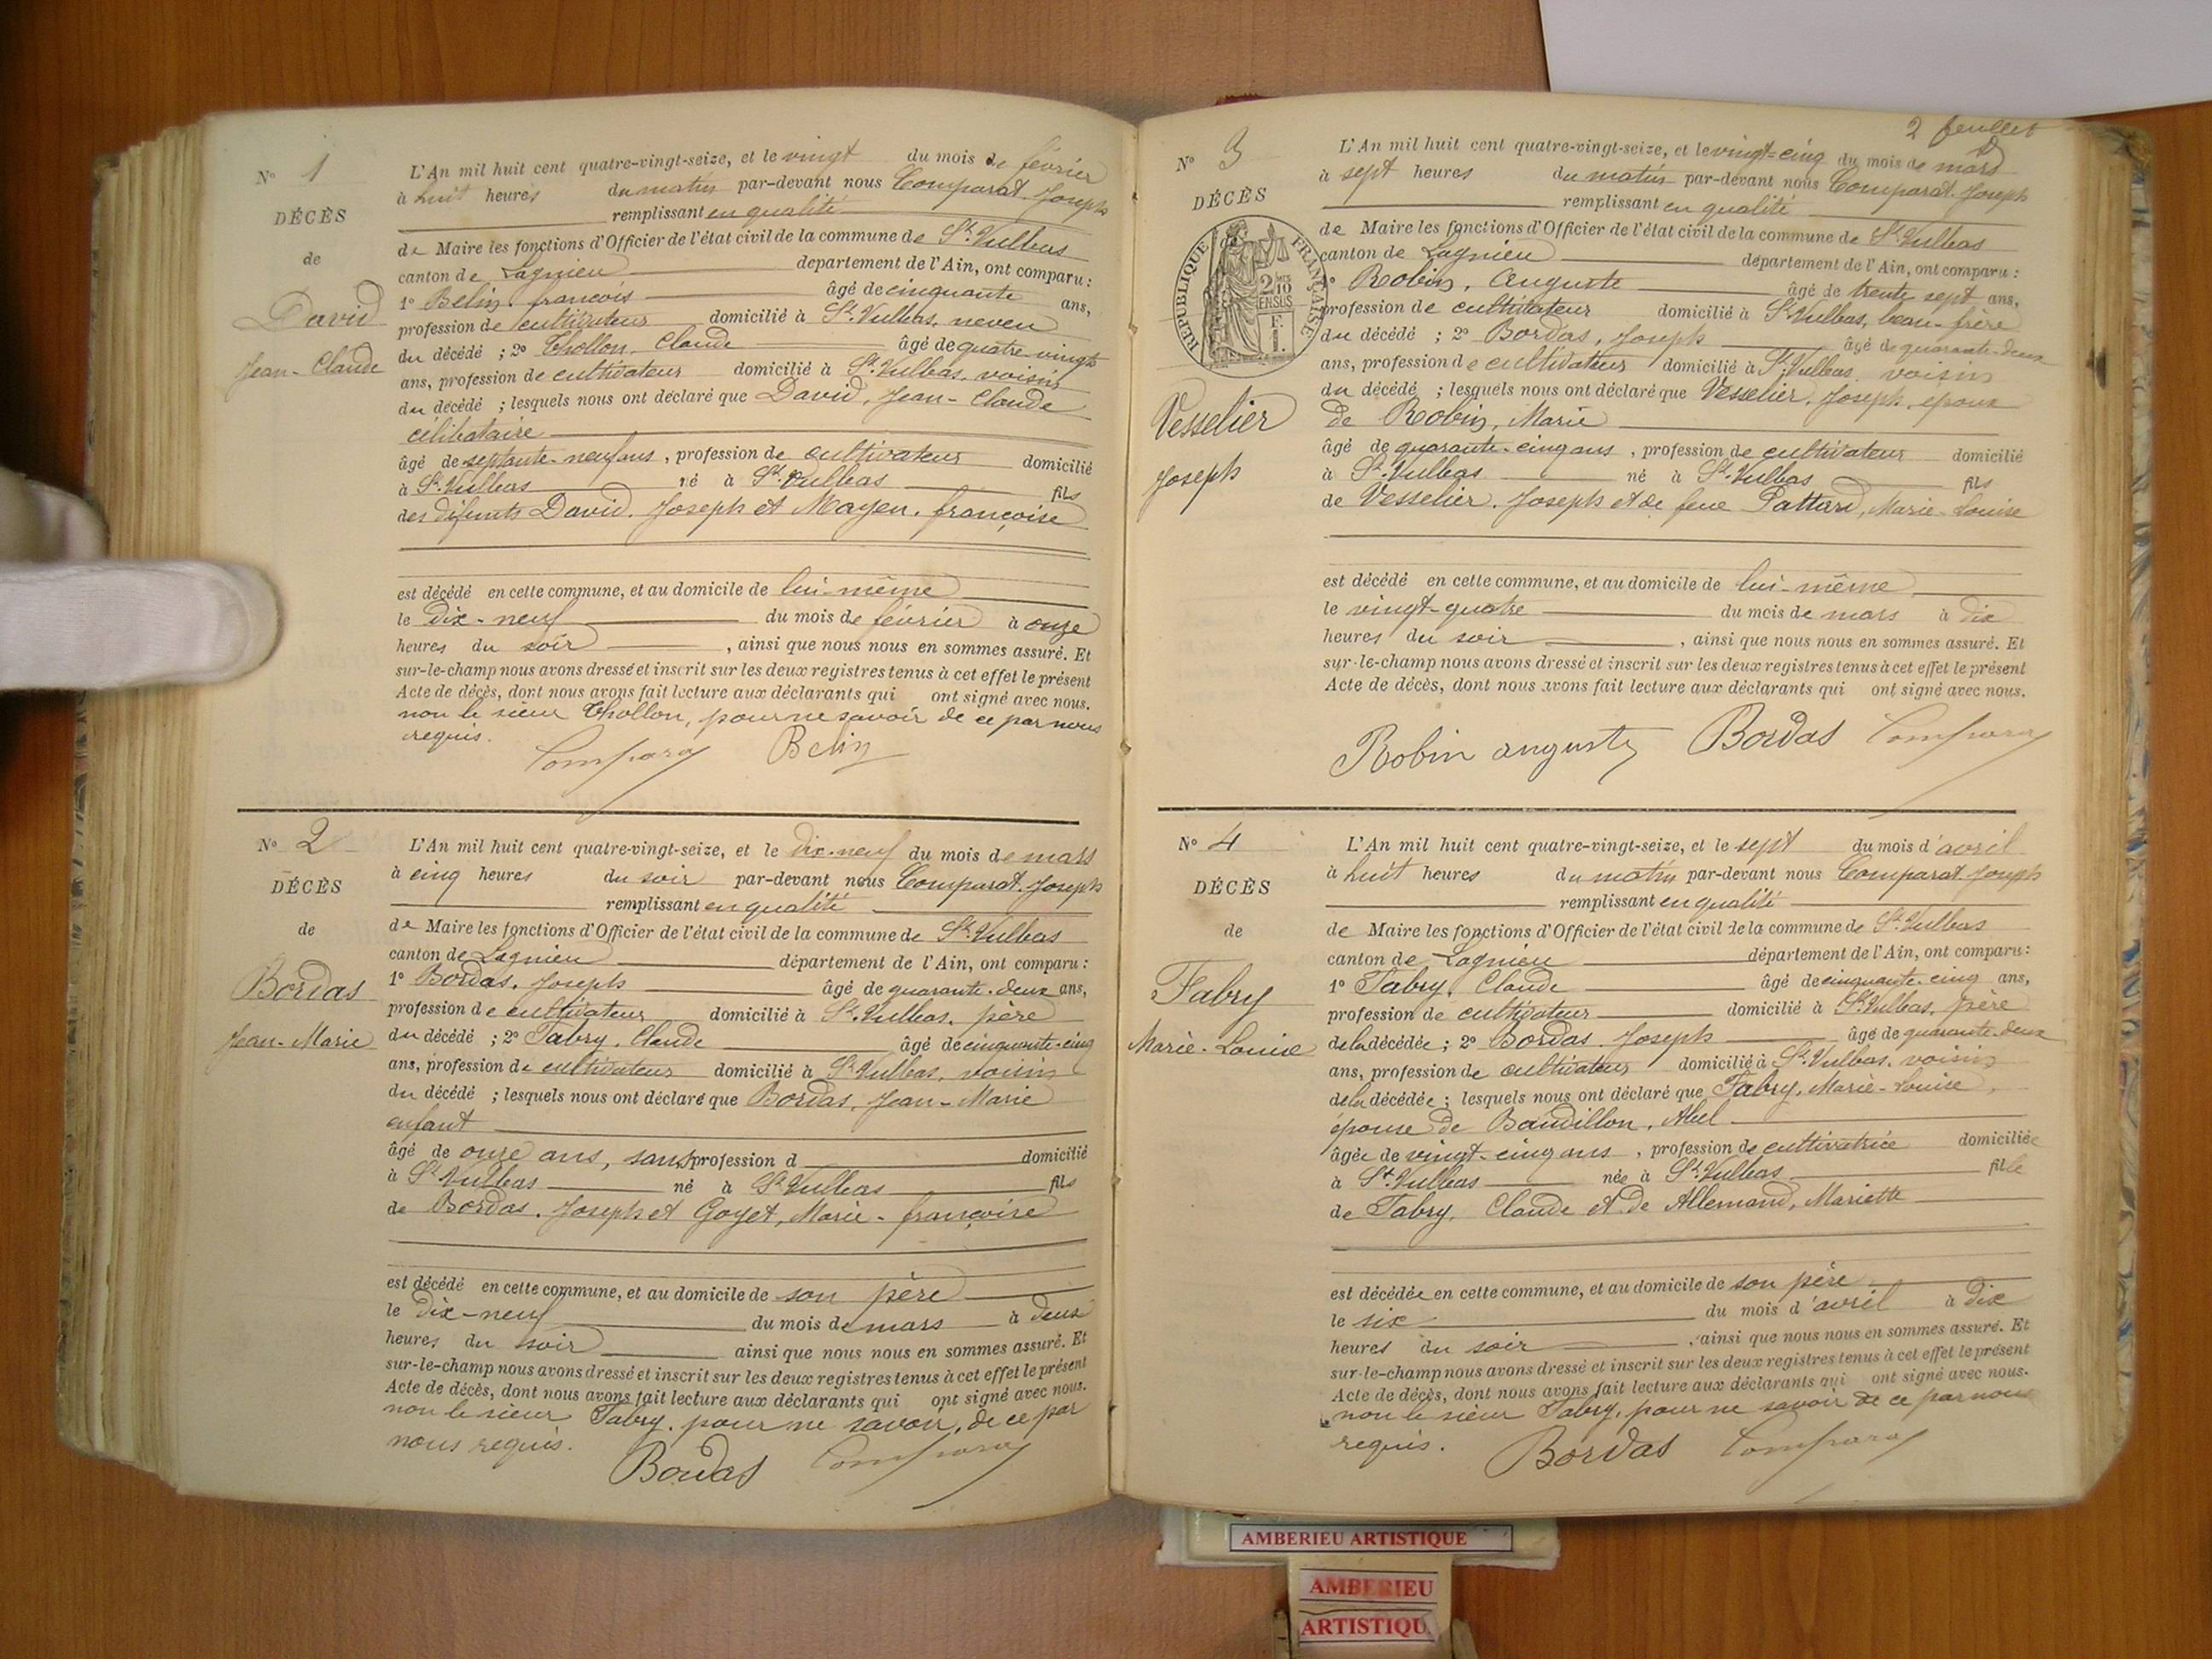 N° 1
DÉCÈS
de
David
Jean-Claude
L'An mil huit cent quatre-vingt-seize, et le vingt du mois de février
à huit heures du matin par-devant nous Comparat. Joseph
remplissant en qualité
de Maire les fonctions d'Officier de l'état civil de la commune de St. Vulbas
canton de Lagnieu département de l'Ain, ont comparu :
1° Belin. françois âgé de cinquante ans,
profession de cultivateur domicilié à St. Vulbas, neveu
du décédé ; 2° Thollon. Claude âgé de quatre-vingts
ans, profession de cultivateur domicilié à St. Vulbas, voisin
du décédé ; lesquels nous ont déclaré que David, Jean-Claude
célibataire
âgé de septante-neuf ans, profession de cultivateur domicilié
à St. Vulbas né à St. Vulbas fils
des défunts David. Joseph et Mayen. françoise
est décédé en cette commune, et au domicile de lui-même
le dix-neuf du mois de février à onze
heures du soir, ainsi que nous nous en sommes assuré. Et
sur-le-champ nous avons dressé et inscrit sur les deux registres tenus à cet effet le présent
Acte de décès, dont nous avons fait lecture aux déclarants qui ont signé avec nous.
non le sieur Thollon, pour ne savoir de ce par nous
requis.
Comparat Belin
N° 2
DÉCÈS
de
Bordas
Jean-Marie
L'An mil huit cent quatre-vingt-seize, et le dix-neuf du mois de mars
à cinq heures du soir par-devant nous Comparat. Joseph
remplissant en qualité
de Maire les fonctions d'Officier de l'état civil de la commune de St. Vulbas
canton de Lagnieu département de l'Ain, ont comparu :
1° Bordas. Joseph âgé de quarante-deux ans,
profession de cultivateur domicilié à St. Vulbas. père
du décédé ; 2° Fabry. Claude âgé de cinquante-cinq
ans, profession de cultivateur domicilié à St. Vulbas, voisin
du décédé ; lesquels nous ont déclaré que Bordas, Jean-Marie
enfant
âgé de onze ans, sans profession d domicilié
à St. Vulbas né à St. Vulbas fils
de Bordas. Joseph et Goyet, Marie-françoise
est décédé en cette commune, et au domicile de son père
le dix-neuf du mois de mars à deux
heures du soir ainsi que nous nous en sommes assuré. Et
sur-le-champ nous avons dressé et inscrit sur les deux registres tenus à cet effet le présent
Acte de décès, dont nous avons fait lecture aux déclarants qui ont signé avec nous.
non le sieur Fabry. pour ne savoir, de ce par
nous requis.
Bordas Comparat
2 feuillet
N° 3
DÉCÈS
RÉPUBLIQUE FRANÇAISE
2/10
EN SUS
Vesselier
Joseph
L'An mil huit cent quatre-vingt-seize, et le vingt-cinq du mois de mars
à sept heures du matin par-devant nous Comparat. Joseph
remplissant en qualité
de Maire les fonctions d'Officier de l'état civil de la commune de St. Vulbas
canton de Lagnieu département de l'Ain, ont comparu :
Robin, Auguste âgé de trente sept ans,
profession de cultivateur domicilié à St. Vulbas, beau-frère
du décédé ; 2° Bordas, Joseph âgé de quarante-deux
ans, profession de cultivateur domicilié à St. Vulbas, voisin
du décédé ; lesquels nous ont déclaré que Vesselier, Joseph, époux
de Robin, Marie
âgé de quarante-cinq ans, profession de cultivateur domicilié
à St. Vulbas né à St. Vulbas fils
de Vesselier. Joseph et de feue Pattard, Marie-Louise
est décédé en cette commune, et au domicile de lui-même
le vingt-quatre du mois de mars à dix
heures du soir, ainsi que nous nous en sommes assuré. Et
sur-le-champ nous avons dressé et inscrit sur les deux registres tenus à cet effet le présent
Acte de décès, dont nous avons fait lecture aux déclarants qui ont signé avec nous.
Robin auguste Bordas Comparat
N° 4
DÉCÈS
de
Fabry
Marie-Louise
L'An mil huit cent quatre-vingt-seize, et le sept du mois d'avril
à huit heures du matin par-devant nous Comparat. Joseph
remplissant en qualité
de Maire les fonctions d'Officier de l'état civil de la commune de St. Vulbas
canton de Lagnieu département de l'Ain, ont comparu :
1° Fabry, Claude âgé de cinquante-cinq ans,
profession de cultivateur domicilié à St. Vulbas, père
de la décédée ; 2° Bordas. Joseph âgé de quarante-deux
ans, profession de cultivateur domicilié à St. Vulbas, voisin
de la décédée ; lesquels nous ont déclaré que Fabry, Marie-Louise,
épouse de Baudillon, Abel
âgée de vingt-cinq ans, profession de cultivatrice domiciliée
à St. Vulbas née à St. Vulbas fille
de Fabry, Claude et de Allemand, Mariette
est décédée en cette commune, et au domicile de son père
le six du mois d'avril à dix
heures du soir, ainsi que nous nous en sommes assuré. Et
sur-le-champ nous avons dressé et inscrit sur les deux registres tenus à cet effet le présent
Acte de décès, dont nous avons fait lecture aux déclarants qui ont signé avec nous.
non le sieur Fabry, pour ne savoir de ce par nous
requis.
Bordas Comparat
AMBERIEU ARTISTIQUE
AMBERIEU
ARTISTIQU